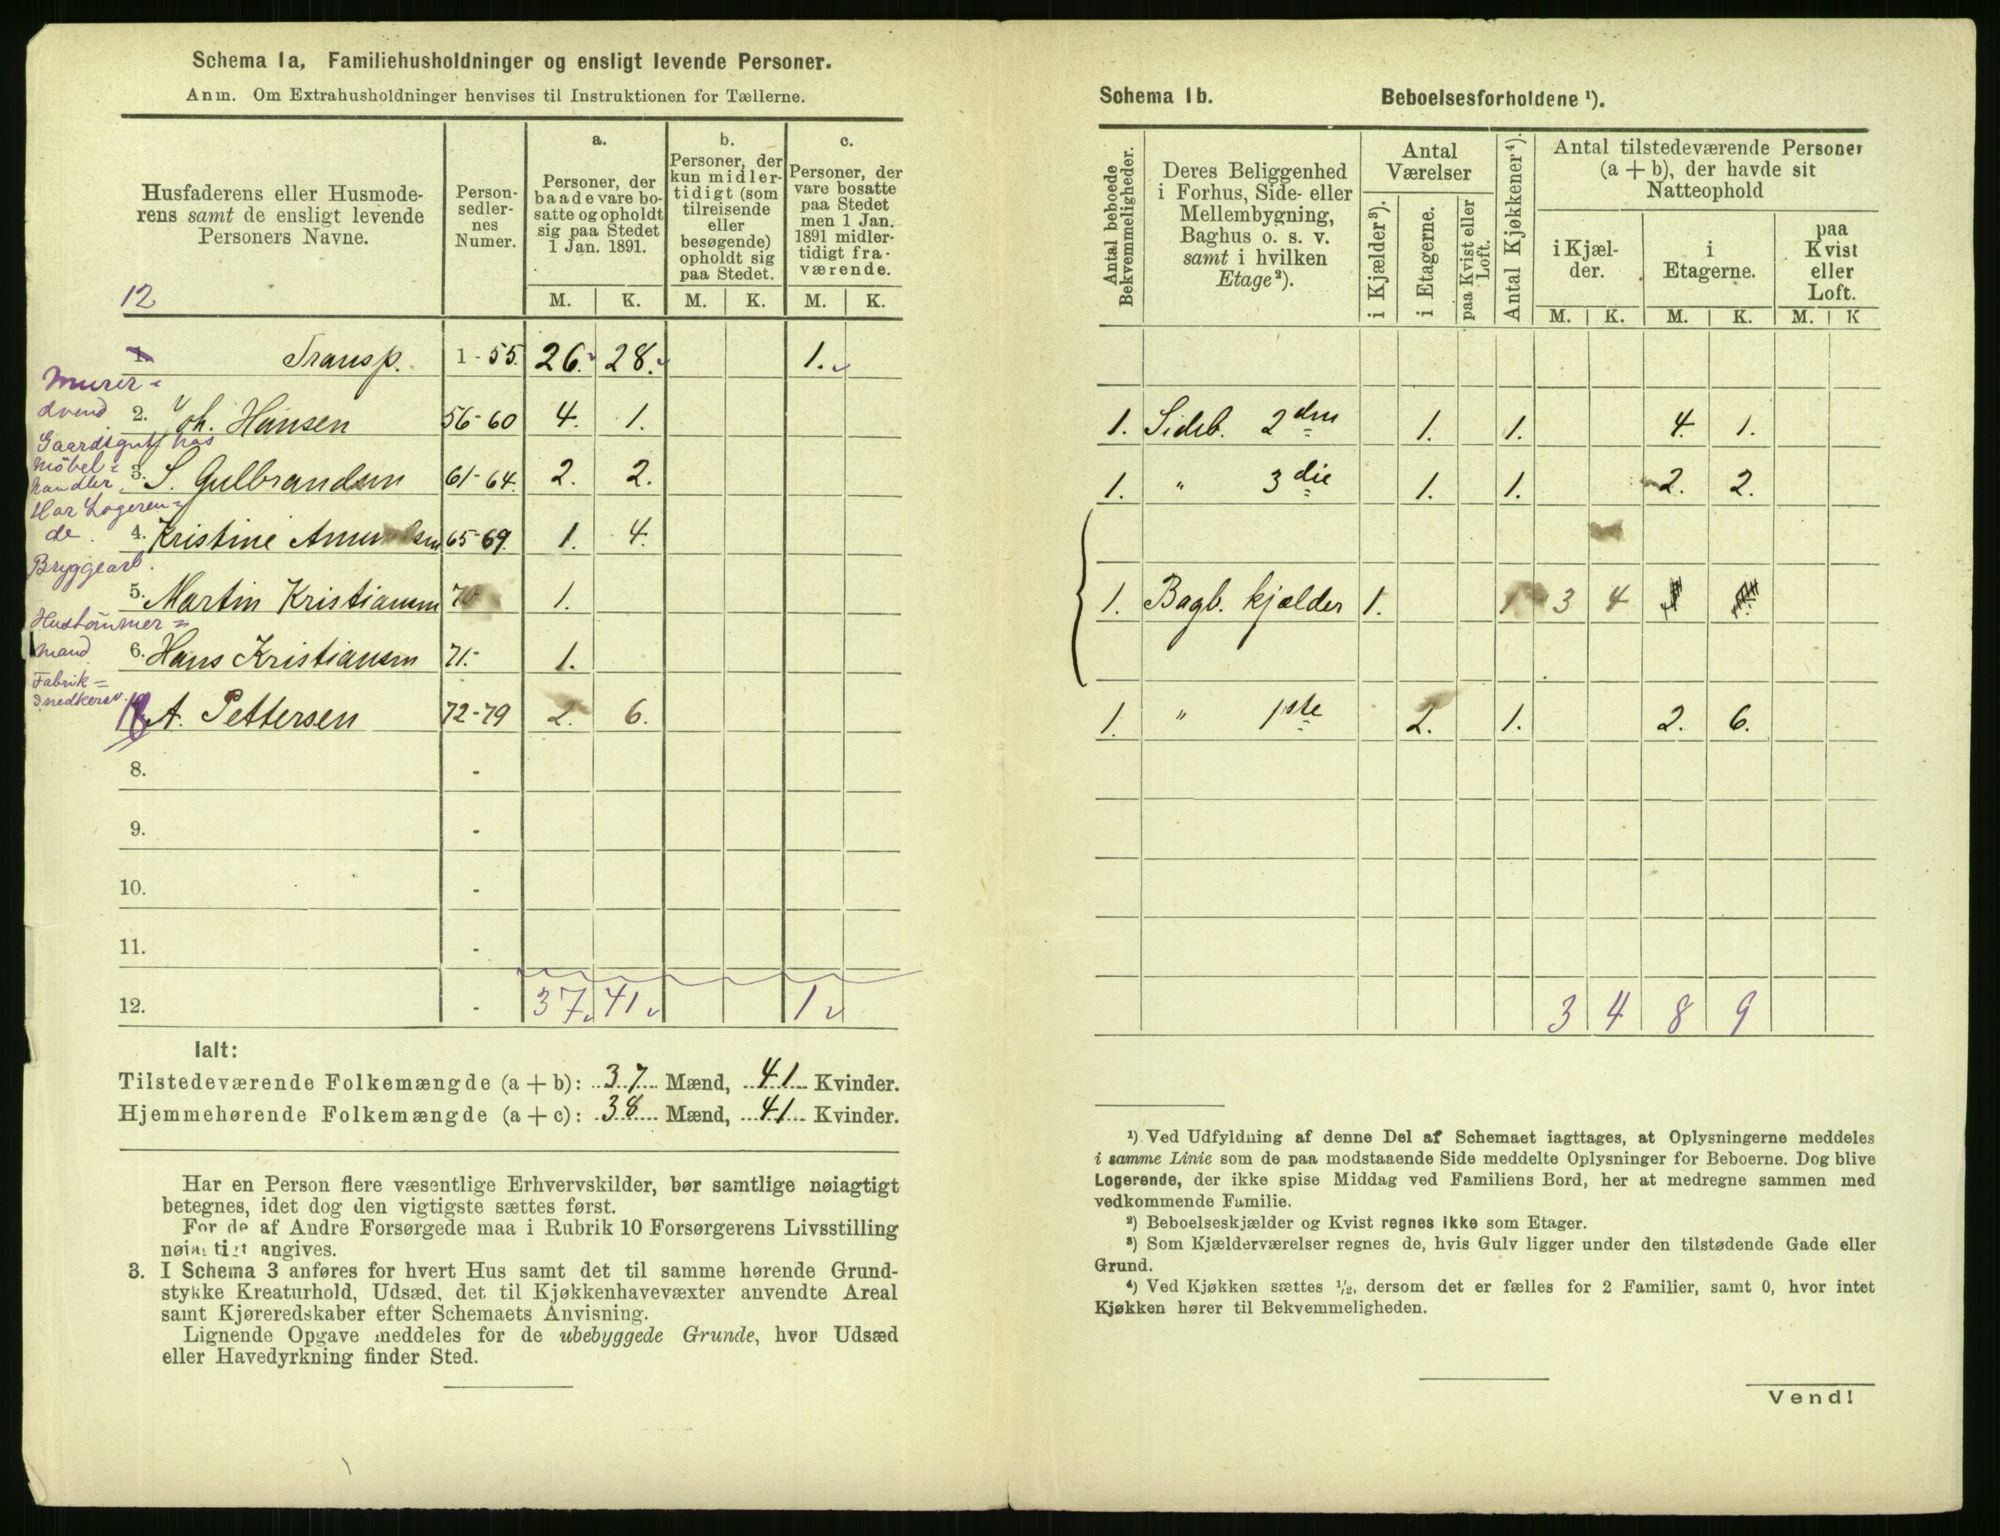 Schema 1a, Familiehusholdninger og ensligt levende Personer.
Anm. Om Extrahusholdninger henvises til Instruktionen for Tællerne.
Husfaderens eller Husmode-
rens samt de ensligt levende
Personers Navne.
12
Person-
sedler-
nes
Numer.
a.
Personer, der
baade vare bo-
satte og opholdt
sig paa Stedet
1 Jan. 1891.
b.
Personer, der
kun midler-
tidigt (som
tilreisende
eller
besøgende)
opholdt sig
paa Stedet.
c.
Personer, der
vare bosatte
paa Stedet
men 1 Jan.
1891 midler-
tidigt fra-
værende.
M. K. M. K. M. K.
1. Transp. 1-55. 26. 28. 1.
Murer-
svend 2. Joh. Hansen 56-60 4. 1.
Gaardsgut hos
Möbel-
handler 3. S. Gulbrandsen 61-64. 2. 2.
Har Logeren-
de. 4. Kristine 65-69. 1. 4.
Bryggearb.
5. Martin Kristiansen 70 1.
Hustömmer-
mand 6. Hans Kristiansen 71.- 1.
Fabrik-
snedkersv. A. Pettersen 72-79 2. 6.
8. -
9. -
10. -
11. -
12. - 37. 41 1
Ialt:
Tilstedeværende Folkemængde (a + b): 37 Mænd, 41 Kvinder.
Hjemmehørende Folkemængde (a + c): 38 Mænd, 41 Kvinder.
Har en Person flere væsentlige Erhvervskilder, bør samtlige nøiagtigt
betegnes, idet dog den vigtigste sættes først.
For de af Andre Forsørgede maa i Rubrik 10 Forsørgerens Livsstilling
angives.
3. I Schema 3 anføres for hvert Hus samt det til samme hørende Grund-
stykke Kreaturhold, Udsæd, det til Kjøkkenhavevæxter anvendte Areal
samt Kjøreredskaber efter Schemaets Anvisning.
Lignende Opgave meddeles for de ubebyggede Grunde, hvor Udsæd
eller Havedyrkning finder Sted.
Schema 1b. Beboelsesforholdene ¹).
Antal beboede
Bekvemmeligheder.
Deres Beliggenhed
i Forhus, Side- eller
Mellembygning,
Baghus o. s. v.
samt i hvilken
Etage ²).
Antal
Værelser
i Kjælder ³).
i Etagerne.
paa Kvist eller
Loft.
Antal Kjøkkener ⁴).
Antal tilstedeværende Personer
(a + b), der havde sit
Natteophold
i Kjæl-
der.
i
Etagerne.
paa
Kvist
eller
Loft.
M. K. M. K. M. K
1. Sideb. 2den 1. 1. 4. 1.
1. " 3die 1. 1. 2. 2.
1. Bagb. kjælder 1. 1 3 4
1. " 1ste 2. 1. 2. 6.
3 4 8 9
¹) Ved Udfyldning af denne Del af Schemaet iagttages, at Oplysningerne meddeles
i samme Linie som de paa modstaaende Side meddelte Oplysninger for Beboerne. Dog blive
Logerende, der ikke spise Middag ved Familiens Bord, her at medregne sammen med
vedkommende Familie.
²) Beboelseskjælder og Kvist regnes ikke som Etager.
³) Som Kjælderværelser regnes de, hvis Gulv ligger under den tilstødende Gade eller
Grund.
⁴) Ved Kjøkken sættes ½, dersom det er fælles for 2 Familier, samt 0, hvor intet
Kjøkken hører til Bekvemmeligheden.
Vend!